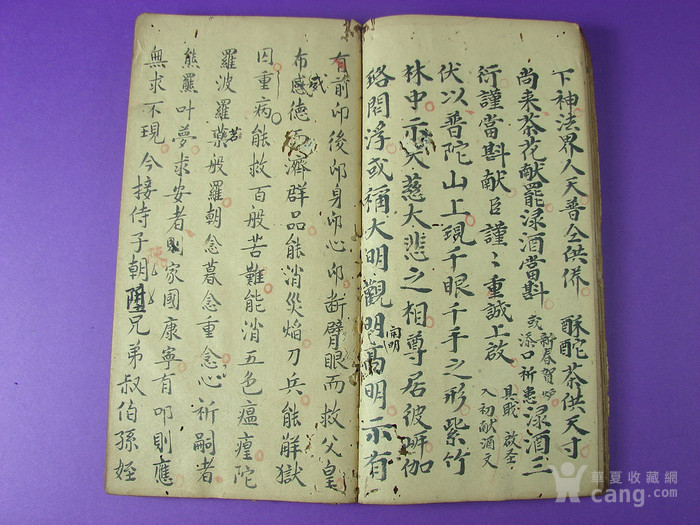 下神法界人天普仝供俻 酥酡茶供天寸
尚来茶花献罢渌酒當斟 或添口祈患 新春賀 渌酒三
衍謹當斟献臣謹〻重誠上啟 具戝 啟圣 入初献酒文
伏以普陀山上現千眼千手之形紫竹
林中示大慈大悲之相尊居彼岍伽
路閻浮或稱大明觀明高明 開明 示有
有前卯後卯身卯心卯断臂眼而救父皇
布感 或 德 濟群品能消災焰刀兵能觧獄
囚重病能救百般苦難能消五色瘟瘽陀
羅波羅藥 若 般羅朝念暮念重念心祈嗣者
熊羆叶夢求安者 家國康寧有叩則應
無求不現今接侍子朝 兄弟叔伯孫姪
華夏收藏網
cang.com